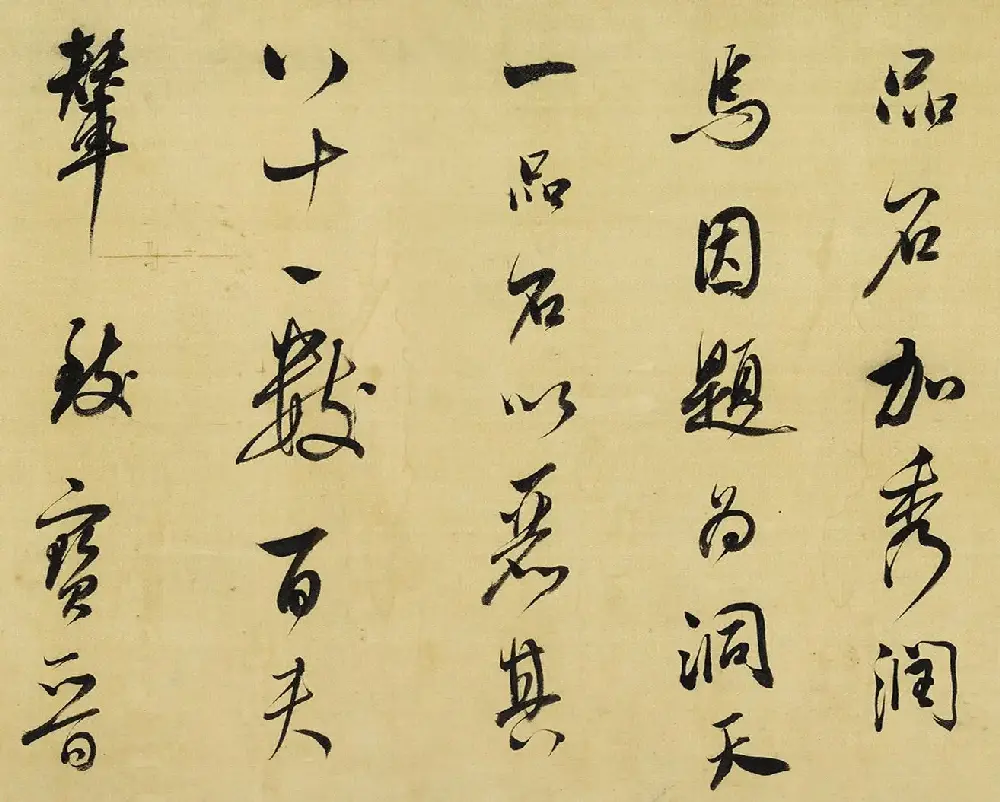 品石加秀潤
焉因題為洞天
一品石以惡其
八十一數百夫
輦致寶晉